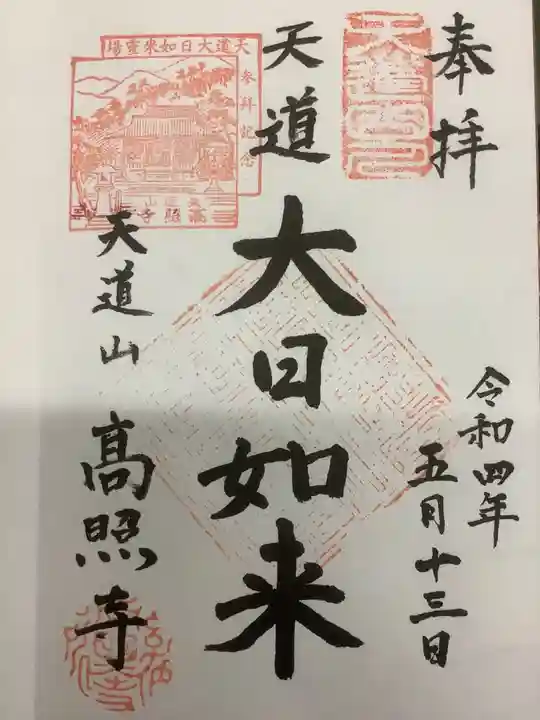 奉拝
令和四年
五月十三日
天道
大日如来
天道山
髙照寺
天道大日如来霊場
参拝記念
天道山
高照寺